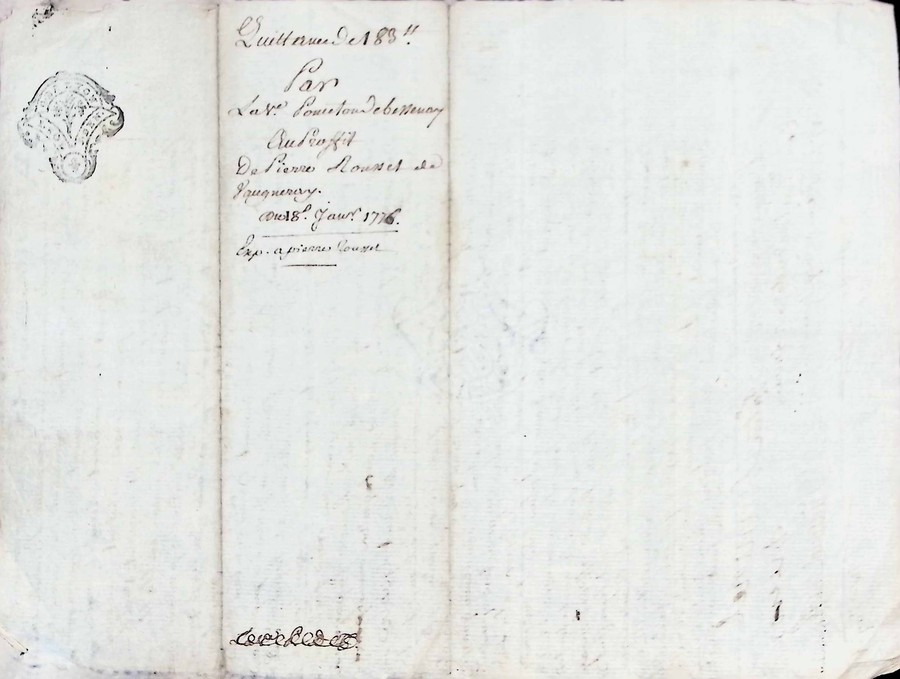 Quittance de 183 ll.
Par
La Ve. Ponceton de bessenay
Au Proffit
De Pierre Rousset de
Vaugneray.
Du 18e. Janvr. 1776.
Exp. a pierre Rousset